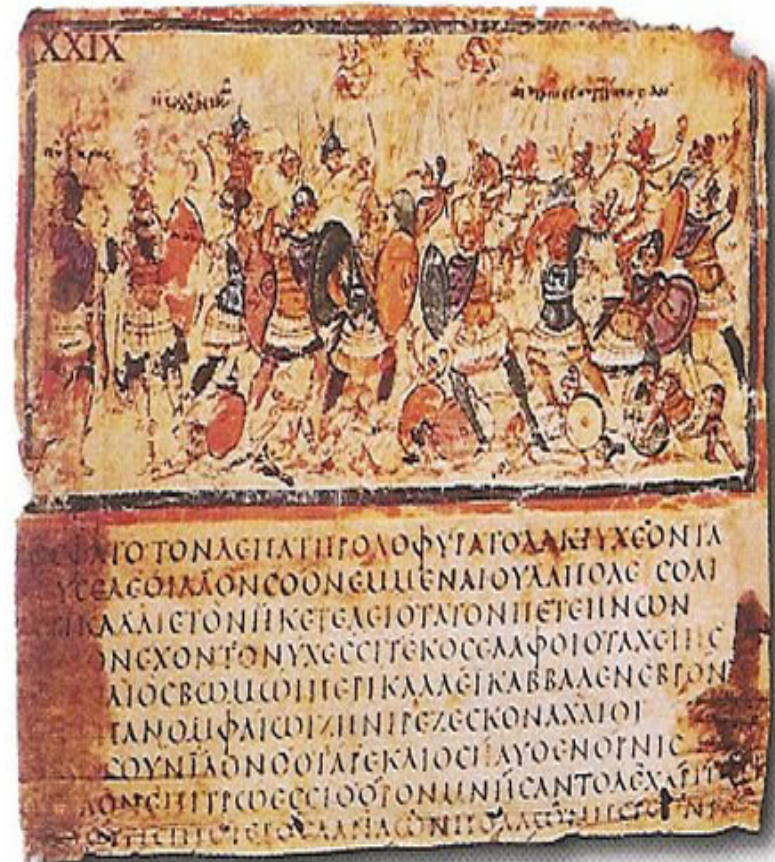 XXIX
ΦΑΤΟ ΤΟΝ ΔΕ ΠΑΤΗΡ ΟΛΟΦΥΡΑΤΟ ΔΑΚΡΥ ΧΕΟΝΤΑ
ΔΕ ΟΙ ΛΑΟΝ ϹΟΟΝ ΕΜΜΕΝΑΙ ΟΥΔ ΑΠΟΛΕϹΘΑΙ
ΑΙΕΤΟΝ ΗΚΕ ΤΕΛΕΙΟΤΑΤΟΝ ΠΕΤΕΗΝΩΝ
ΕΧΟΝΤ ΟΝΥΧΕϹϹΙ ΤΕΚΟϹ ΕΛΑΦΟΙΟ ΤΑΧΕΙΗϹ
ΔΙΟϹ ΒΩΜΩΙ ΠΕΡΙΚΑΛΛΕΙ ΚΑΒΒΑΛΕ ΝΕΒΡΟΝ
ΠΑΝΟΜΦΑΙΩΙ ΖΗΝΙ ΡΕΖΕϹΚΟΝ ΑΧΑΙΟΙ
ΟΥΝ ΙΔΟΝΘ Ο Τ ΑΡ ΕΚ ΔΙΟϹ ΗΛΥΘΕΝ ΟΡΝΙϹ
ΕΠΙ ΤΡΩΕϹϹΙ ΘΟΡΟΝ ΜΝΗϹΑΝΤΟ ΔΕ
ΔΑΝΑΩΝ ΠΟΛΛΩΝ